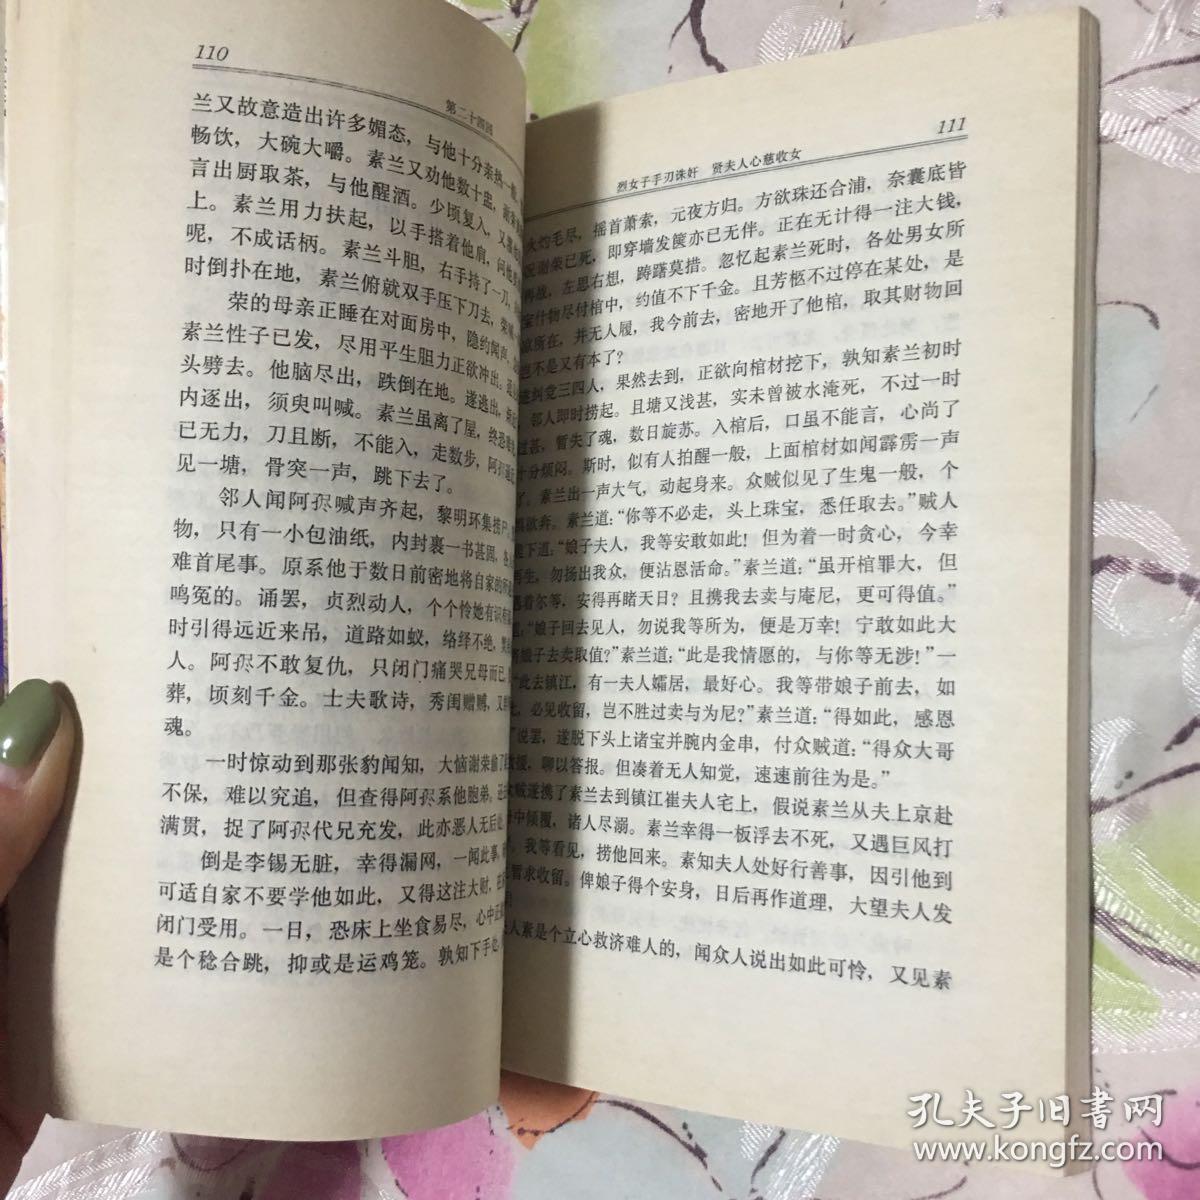 110
第二十四回
兰又故意造出许多媚态，与他十分亲热一般，
畅饮，大碗大嚼。素兰又劝他数十盅，
言出厨取茶，与他醒酒。少顷复入，又
上。素兰用力扶起，以手搭着他肩，问他
呢，不成话柄。素兰斗胆，右手持了一刀，
时倒扑在地，素兰俯就双手压下刀去，荣
荣的母亲正睡在对面房中，隐约闻声，
素兰性子已发，尽用平生胆力正欲冲出。
头劈去。他脑尽出，跌倒在地。遂逃出，
内逐出，须臾叫喊。素兰虽离了屋，终恐
已无力，刀且断，不能入，走数步，阿狝
见一塘，骨突一声，跳下去了。
邻人闻阿狝喊声齐起，黎明环集捞尸，
物，只有一小包油纸，内封裹一书甚固，各
难首尾事。原系他于数日前密地将自家的所
鸣冤的。诵罢，贞烈动人，个个怜她有识有
时引得远近来吊，道路如蚁，络绎不绝，
人。阿狝不敢复仇，只闭门痛哭兄母而已，
葬，顷刻千金。士夫歌诗，秀闺赠赙，又
魂。
一时惊动到那张豹闻知，大恼谢荣偷了
不保，难以究追，但查得阿狝系他胞弟，还
满贯，捉了阿狝代兄充发，此亦恶人无后处
倒是李锡无脏，幸得漏网，一闻此事，
可适自家不要学他如此，又得这注大财，在
闭门受用。一日，恐床上坐食易尽，心中正
是个稔合跳，抑或是运鸡笼。孰知下手必
111
烈女子手刃诛奸　贤夫人心慈收女
火灼毛尽，摇首萧索，元夜方归。方欲珠还合浦，奈囊底皆
况谢荣已死，即穿墙发箧亦已无伴。正在无计得一注大钱，
再战，左思右想，踌躇莫措。忽忆起素兰死时，各处男女所
宝什物尽付棺中，约值不下千金。且芳柩不过停在某处，是
所在，并无人履，我今前去，密地开了他棺，取其财物回
岂不是又有本了？
遂纠党三四人，果然去到，正欲向棺材挖下，孰知素兰初时
邻人即时捞起。且塘又浅甚，实未曾被水淹死，不过一时
过甚，暂失了魂，数日旋苏。入棺后，口虽不能言，心尚了
十分烦闷。斯时，似有人拍醒一般，上面棺材如闻霹雳一声
了。素兰出一声大气，动起身来。众贼似见了生鬼一般，个
俱欲奔。素兰道：“你等不必走，头上珠宝，悉任取去。”贼人
下道：“娘子夫人，我等安敢如此！但为着一时贪心，今幸
再生，勿扬出我众，便沾恩活命。”素兰道：“虽开棺罪大，但
着尔等，安得再睹天日？且携我去卖与庵尼，更可得值。”
道，“娘子回去见人，勿说我等所为，便是万幸！宁敢如此大
娘子去卖取值？”素兰道：“此是我情愿的，与你等无涉！”一
“此去镇江，有一夫人孀居，最好心。我等带娘子前去，如
必见收留，岂不胜过卖与为尼？”素兰道：“得如此，感恩
了”说罢，遂脱下头上诸宝并腕内金串，付众贼道：“得众大哥
援，聊以答报。但凑着无人知觉，速速前往为是。”
贼遂携了素兰去到镇江崔夫人宅上，假说素兰从夫上京赴
中倾覆，诸人尽溺。素兰幸得一板浮去不死，又遇巨风打
我等看见，捞他回来。素知夫人处好行善事，因引他到
暂求收留。俾娘子得个安身，日后再作道理，大望夫人发
夫人素是个立心救济难人的，闻众人说出如此可怜，又见素
孔夫子旧书网
www.kongfz.com